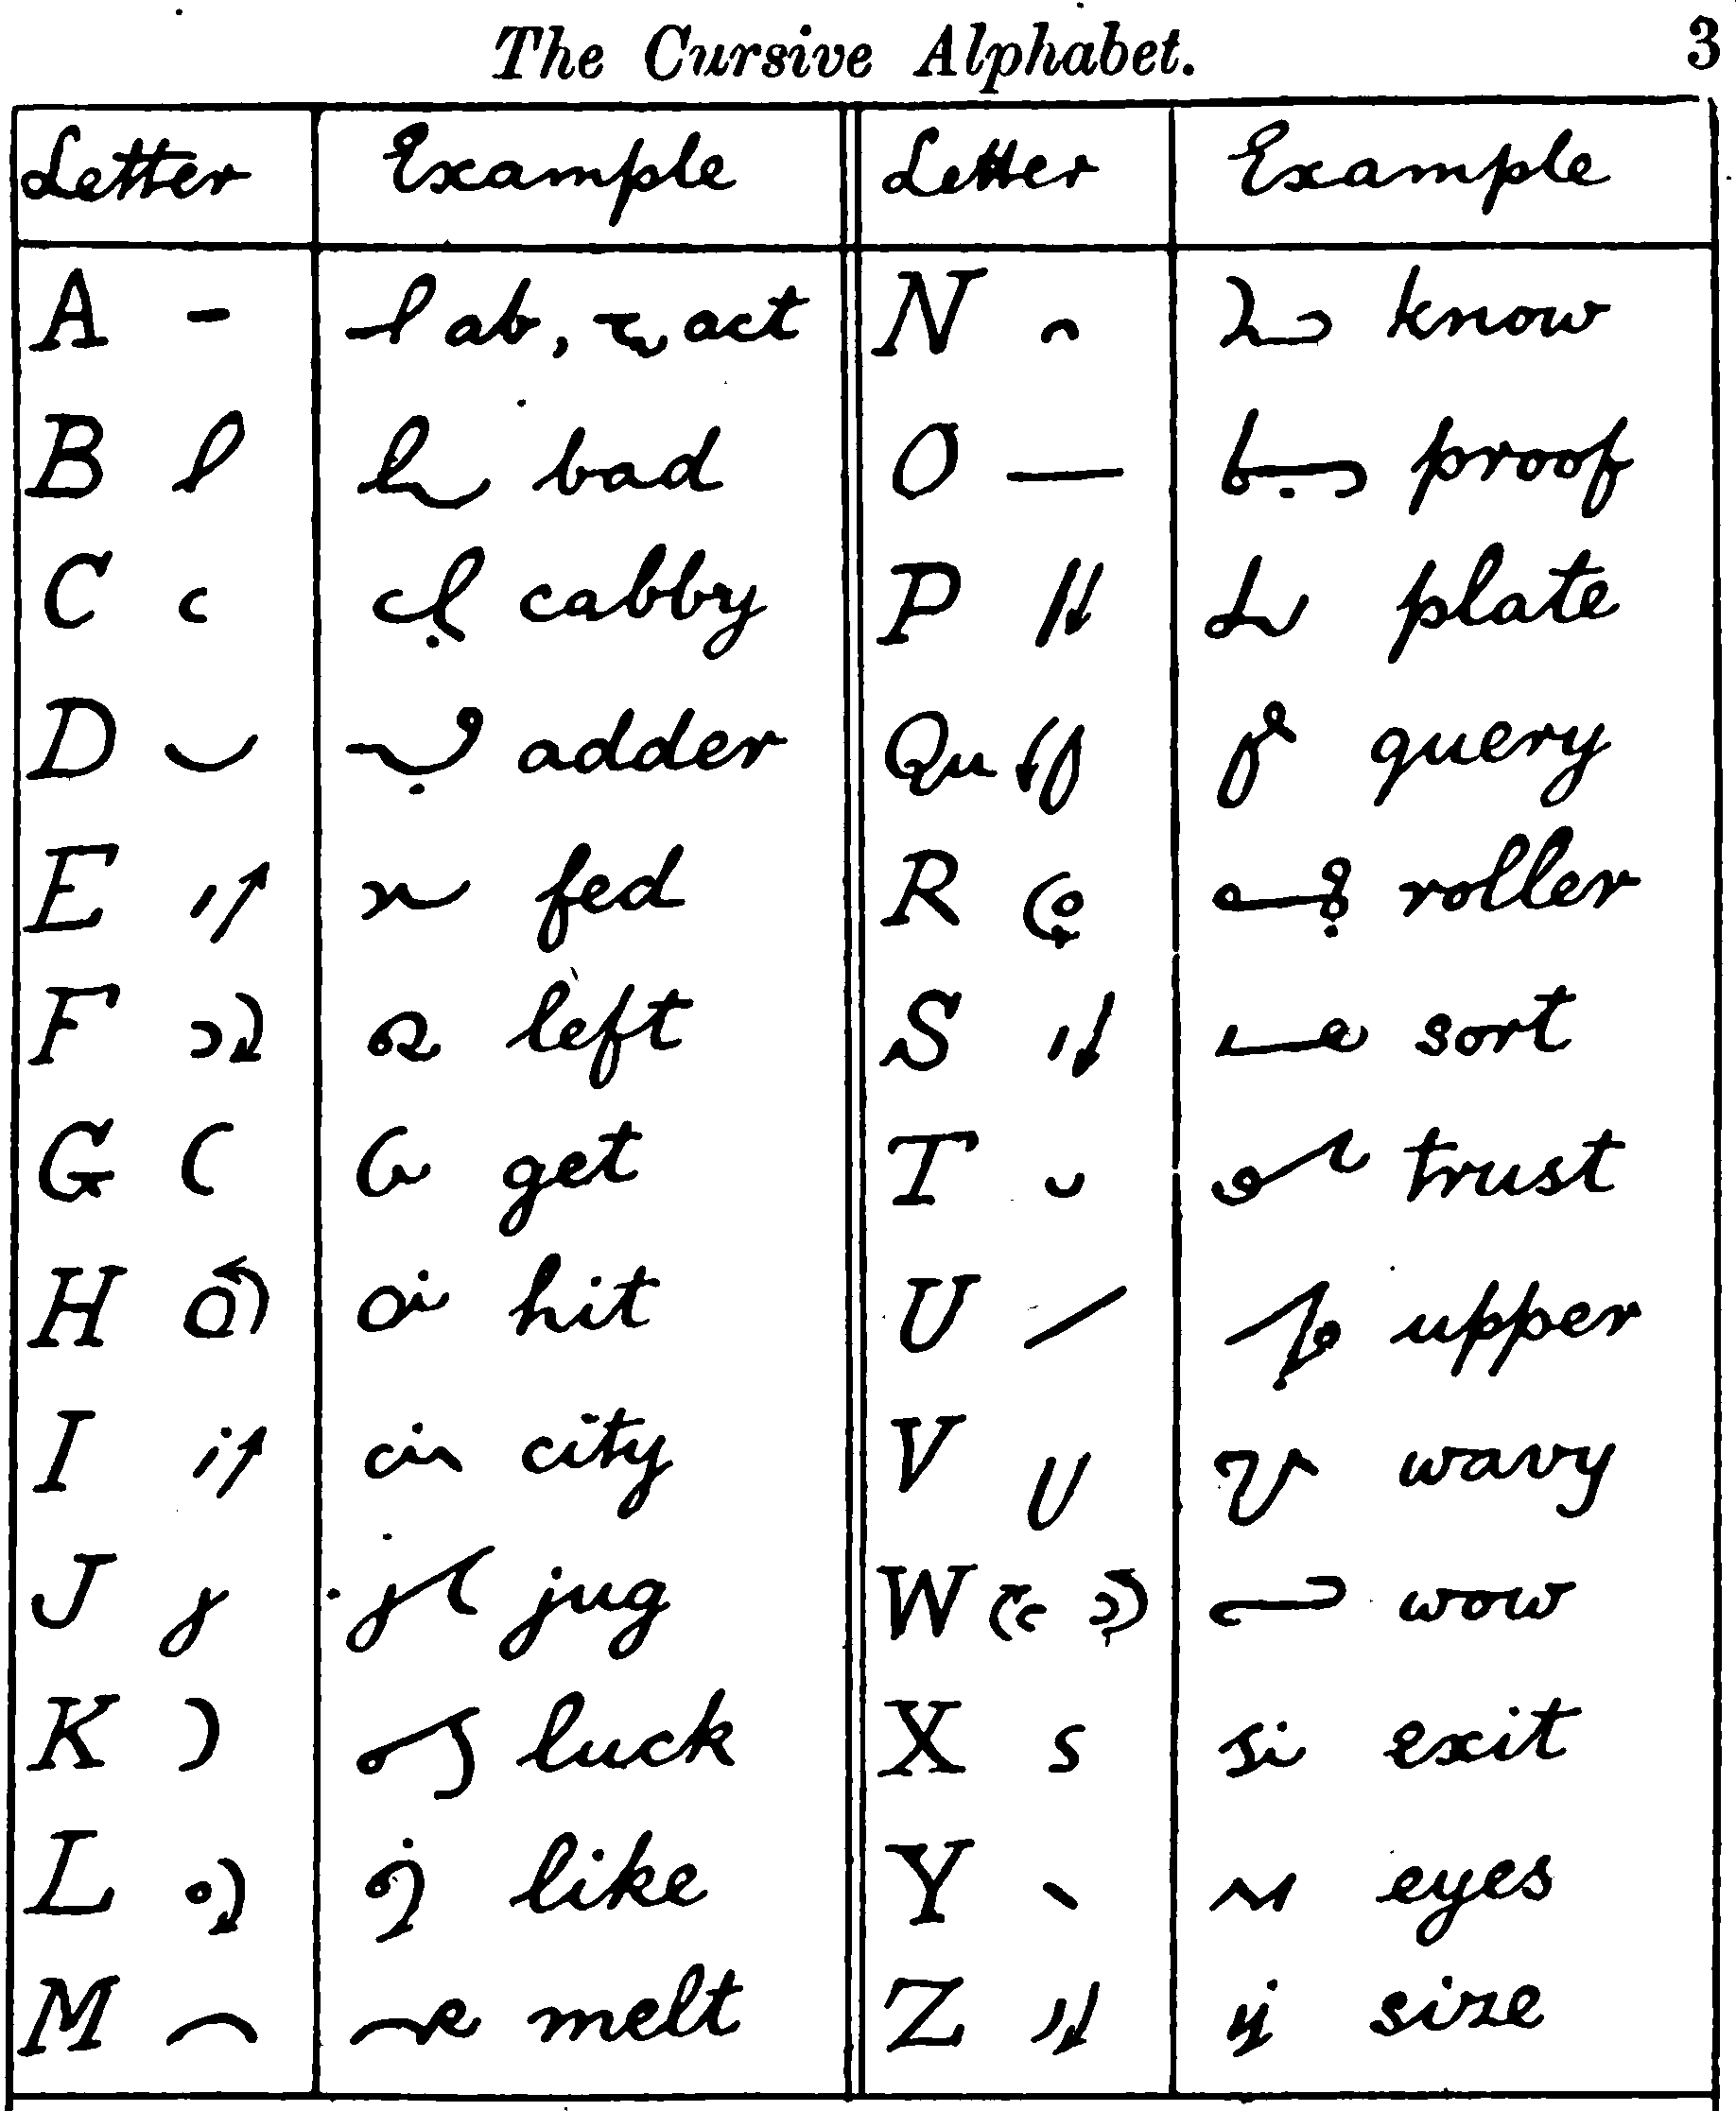 The Cursive Alphabet. 3
Letter Example Letter Example
A ab, act N know
B bad O proof
C cabby P plate
D adder Qu query
E fed R roller
F left S sort
G get T trust
H hit U upper
I city V wavy
J jug W wow
K luck X exit
L like Y eyes
M melt Z size